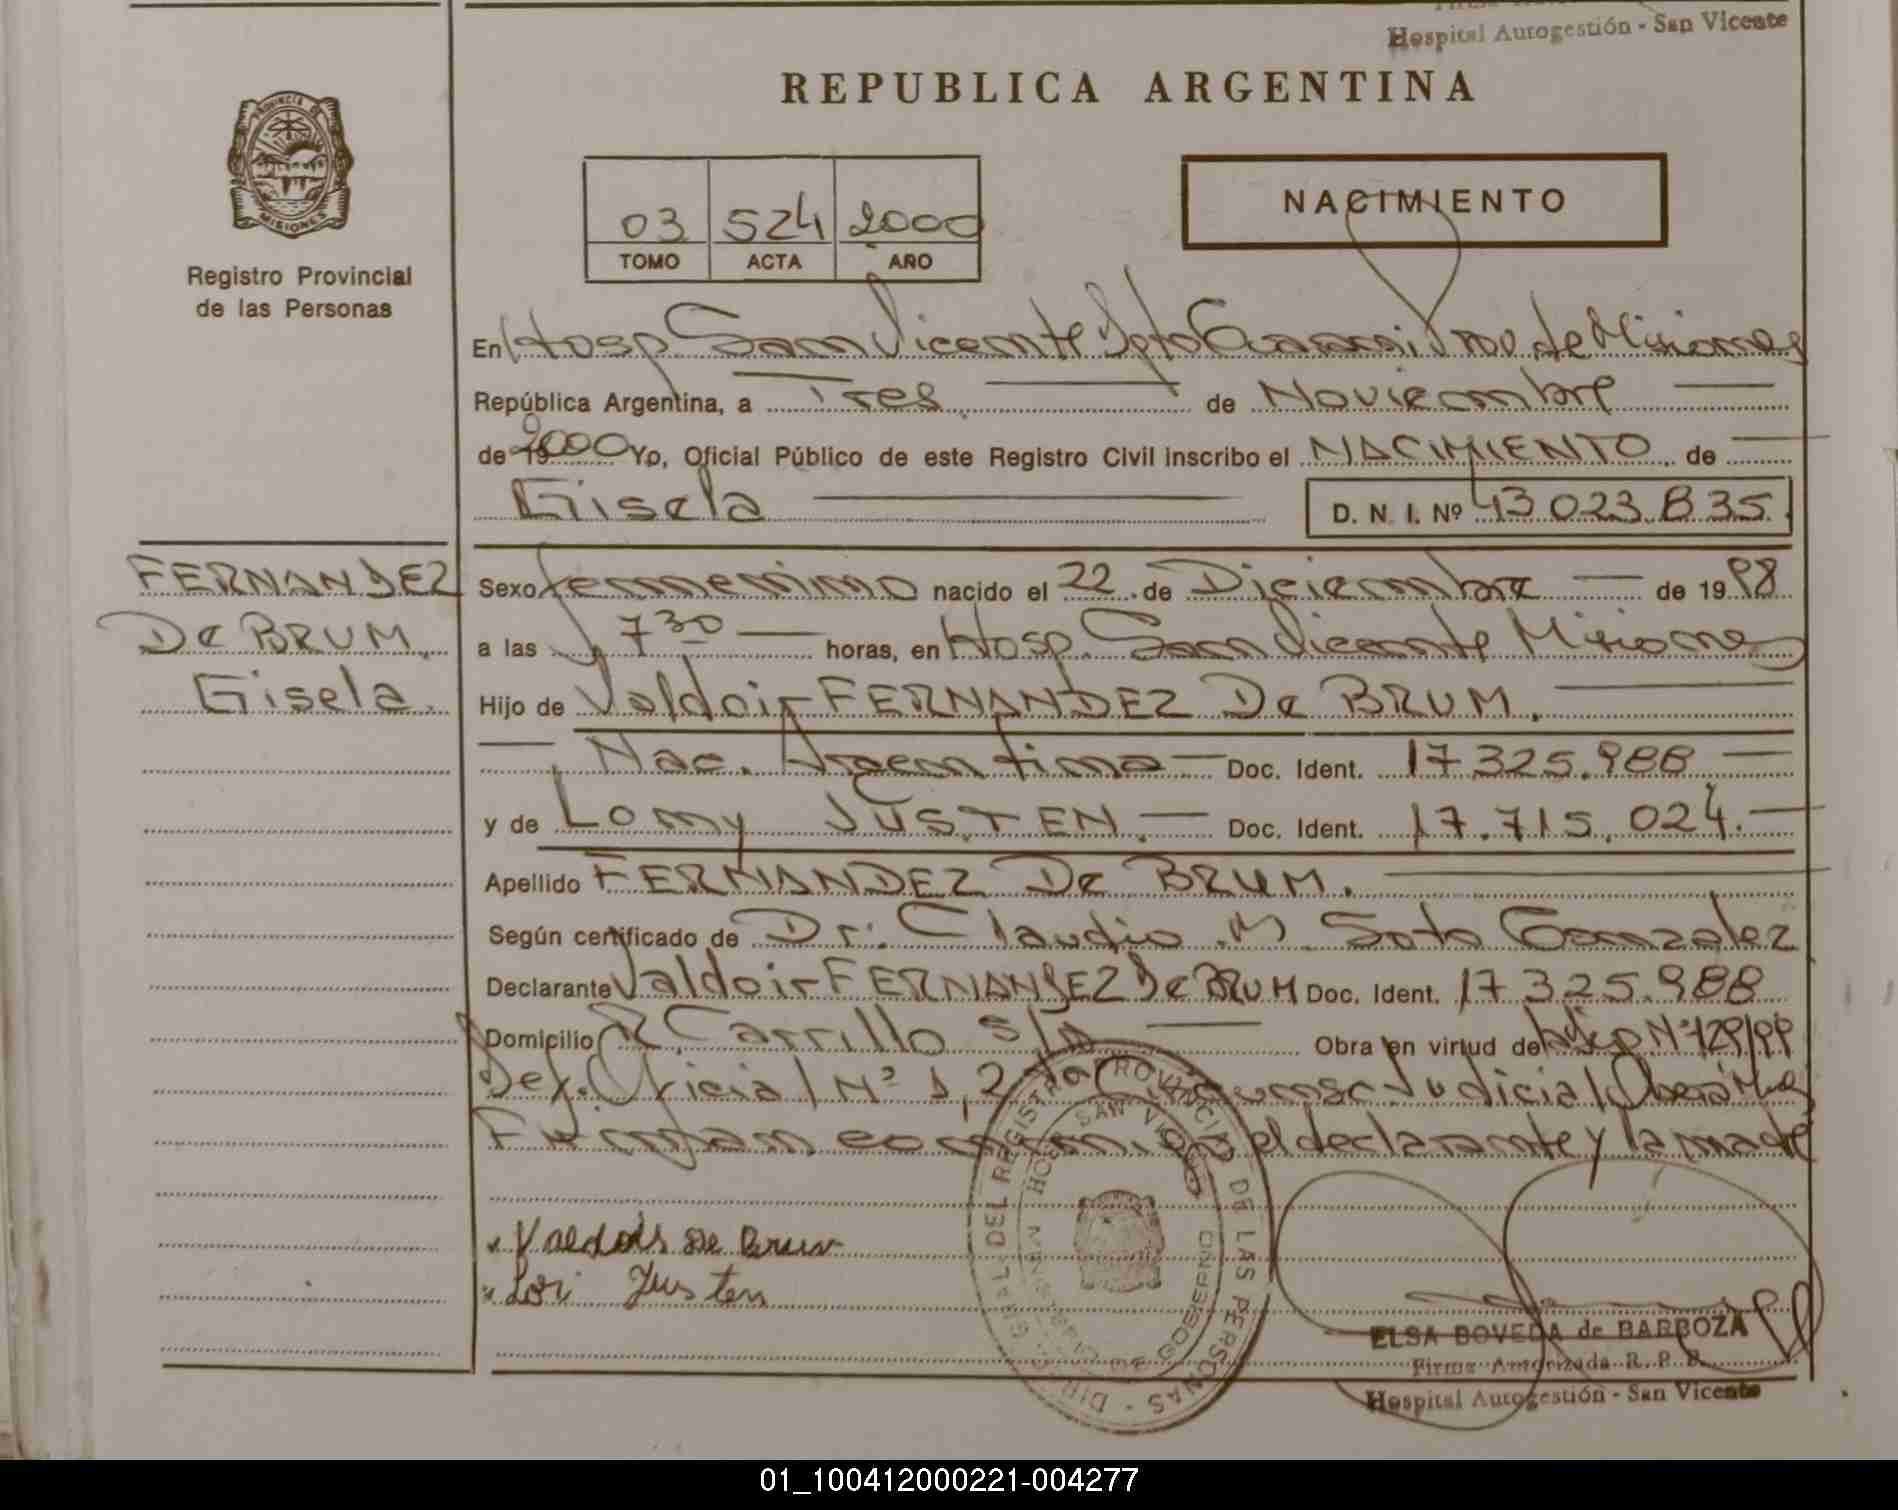 Hospital Autogestión - San Vicente
REPUBLICA ARGENTINA
PROVINCIA DE MISIONES
Registro Provincial
de las Personas
03 524 2000
TOMO ACTA AÑO
NACIMIENTO
En Hosp San Vicente Dpto Guarani Prov de Misiones
República Argentina, a Tres de Noviembre
de 19 2000 Yo, Oficial Público de este Registro Civil inscribo el NACIMIENTO de
Gisela D. N. I. Nº 43 023 835.
FERNANDEZ
De BRUM.
Gisela.
Sexo femenino nacido el 22 de Diciembre de 19 98
a las 7 30 horas, en Hosp. San Vicente Misiones
Hijo de Valdoir FERNANDEZ De BRUM.
Nac. Argentina Doc. Ident. 17 325.988
y de Lomy JUSTEN. Doc. Ident. 17.715.024.
Apellido FERNANDEZ De BRUM.
Según certificado de Dr. Claudio M. Soto Gonzalez
Declarante Valdoir FERNANDEZ De BRUM Doc. Ident. 17 325.988
Domicilio R. Carrillo s/n Obra en virtud de Nº 129/99
Def. Oficial Nº 1, 2 da Circunsc. Judicial Oberá Mnes
Firman conmigo el declarante y la madre
Valdois De Brun
Lori Justen
DIRECCION GRAL. DEL REGISTRO PROVINCIAL DE LAS PERSONAS
HOSP. SAN VICENTE
MINISTERIO DE GOBIERNO
ELSA BOVEDA de BARBOZA
Firma Autorizada R. P. P.
Hospital Autogestión - San Vicente
01_100412000221-004277